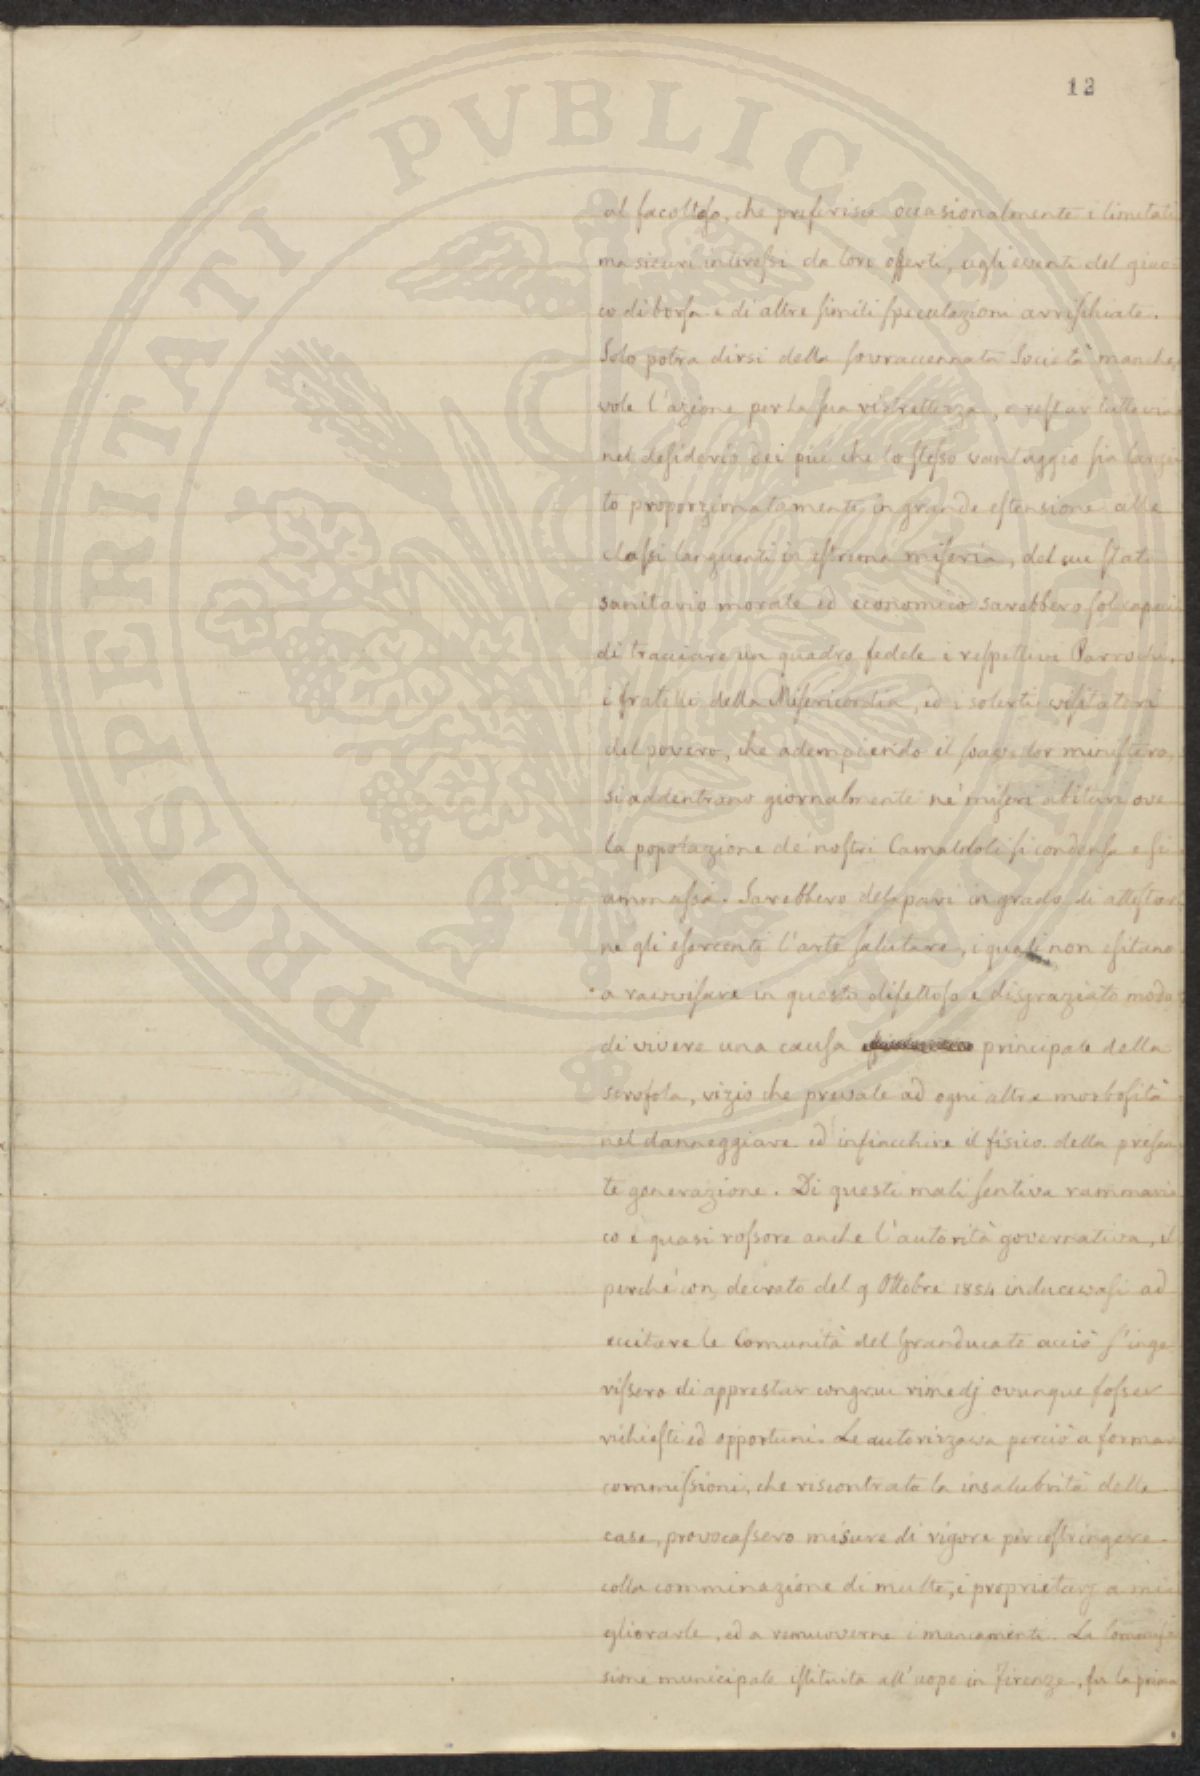 12
PROSPERITATI PVBLICAE
al facoltoso, che preferisce occasionalmente i limitati
ma sicuri interessi da loro offerti, agli eventi del giuo-
co di borsa e di altre simili speculazioni arrischiate.
Solo potra dirsi della sovraccennata Società manche,
vole l'azione per la sua ristrettezza, e restar tuttavia
nel desiderio dei più che lo stesso vantaggio sia largi
to proporzionatamente in grande estensione alle
classi languenti in estrema miseria, del cui stato
sanitario morale ed economico sarebbero sol capaci
di tracciare un quadro fedele i respettivi Parrochi,
i fratelli della Misericordia, ed i solerti visitatori
del povero, che adempiendo il sacro lor ministero,
si addentrano giornalmente ne' miseri abituri ove
la popolazione de' nostri Camaldoli si condensa e si
ammassa. Sarebbero del pari in grado di attestar
ne gli esercenti l'arte salutare, i quali non esitano
a ravvisare in questo difettoso e disgraziato modo
di vivere una causa principale della
scrofola, vizio che prevale ad ogni altra morbosità
nel danneggiare ed infiacchire il fisico della presen
te generazione. Di questi mali sentiva rammari
co e quasi rossore anche l'autorità governativa, il
perchè con decreto del 9 Ottobre 1854 inducevasi ad
eccitare le Comunità del Granducato acciò s'inge
rissero di apprestar congrui rimedj ovunque fosser
richiesti ed opportuni. Le autorizzava perciò a formar
commissioni, che riscontrata la insalubrità delle
case, provocassero misure di rigore per costringere
colla comminazione di multe, i proprietarj a mi
gliorarle, ed a remuoverne i mancamenti. La Commis
sione municipale istituita all'uopo in Firenze, fu la prima